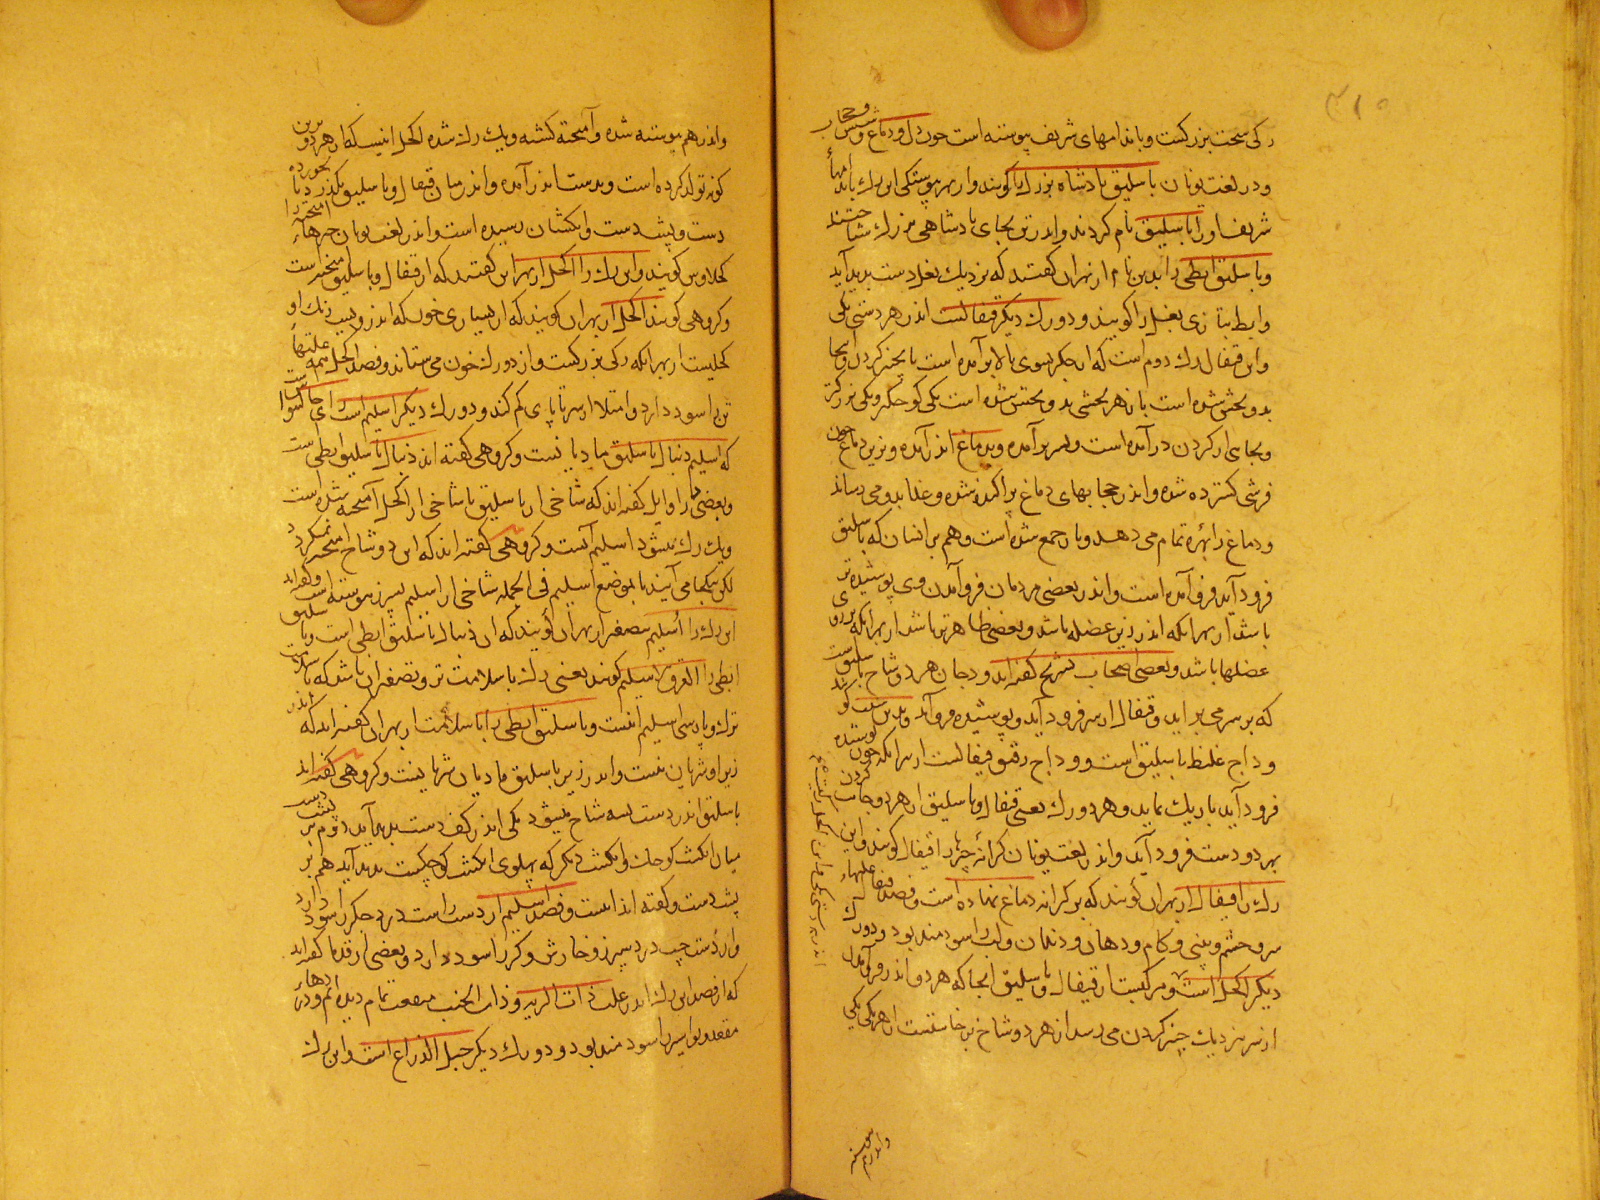 ۳۱۵
رکی سخت بزرکست وباندامهای شریف پیوسته است چون دل ودماغ وشش وحجاب
ودر لغت یونان باسلیق پادشاه بزرك را کویند واز بهر پیوستکی این رك باندامهاء
شریف اورا باسلیق نام کردند واندر تن بجای پادشاهی بزرك شناختند
وباسلیق ابطی را بدین نام از بهران کفتند که نزدیك بغل دست پدید آید
وابط بتازی بغل را کویند ودو رك دیکر قیفالست اندر هر دستی یکی
واین قیفال رك دوم است که از جکر بسوی بالا بر آمده است تا بچنبر کردن وانجا
بدو بخش شده است باز هر بخشی بدو بخش شده است یکی کوچکتر ویکی بزرکتر
وبجانب کردن در آمده است وبسر بر آمده وبدماغ اندر آمده وزیر دماغ چون
فرشی کسترده شده واندر حجابهای دماغ پراکنده شده وغذا بدو می رساند
ودماغ را بهره تمام می دهد وباز جمع شده است وهم بر انسان که باسلیق
فرود آید فرو آمده است واندر بعضی مردمان فرو آمدن وی پوشیده تر
باشد از بهر آنکه اندر زیر عضله باشد وبعضی ظاهر تر باشد از بهر آنکه بر روی
عضلها باشد وبعضی اصحاب تشریح کفته اند ودجان هر دو شاخ باسلیق است
که بر سر می بر آید وقیفال از سر فرود آید وپوشیده فرو آید وبدین سبب کویند
وداج غلیظ باسلیق است ووداج رقیق قیفالست از بهر آنکه چون پوشیده
فرود آید باریك نماید وهر دو رك یعنی قیفال وباسلیق از هر دو جانب کردن
بهر دو دست فرود آید واندر لغت یونان کرانه چیزها را قیفال کویند واین
رك را قیفال از بهران کویند که بر کرانه دماغ نهاده است وفصد قیفال علتهاء
سر وچشم وبینی وکام ودهان ودندان ولب را سودمند بود ودو رك
دیکر اکحل است ومرکبست از قیفال وباسلیق انجا که هر دو اندر فرو آمدن
از سر نزدیك چنبر کردن می رسد از هر دو شاخ بر خاستست از هر یکی یکی
واندر هم پیوسته
واندر هم پیوسته شده وآمیخته کشته ویك رك شده اکحل اینست که از هر دو برین
کونه تولد کرده است وبدست اندر آمده واندر میان قیفال وباسلیق بکذرد تا بخورده
دست وپشت دست وانکشتان رسیده است واندر لغت یونان چیزهاء امیخته را
کحلاوس کویند واین رك را اکحل از بهر این کفتند که از قیفال وباسلیق امیخته است
وکروهی کویند اکحل از بهران کویند که از بسیاری خون که اندر ویست رنك او
کحلیست از بهر آنکه رکی بزرکست واز دو رك خون می ستاند وفصد اکحل همه علتهاء
تن را سود دارد وامتلا از سر تا پای کم کند ودو رك دیکر اسیلم است
که اسیلم دنبال باسلیق مادیانیست وکروهی کفته اند دنبال باسلیق ابطی است
وبعضی از اوایل کفته اند که شاخی از باسلیق با شاخی از اکحل آمیخته شده است
ویك رك میشود اسیلم آنست وکروهی کفته اند که این دو شاخ آمیخته نمیکردد
لکن یکجا می آیند تا بموضع اسیلم فی الجمله شاخی از اسیلم بسپرز پیوسته است وکفته اند
این رك را اسیلم مصغر از بهران کویند که ان دنبال باسلیق ابطی است وباسلیق
ابطی را العرق اسیلم کویند یعنی رك با سلامت تر وتصغیر ان باشد که با سلامت
ترك وپارسی اسیلم اینست وباسلیق ابطی را با سلامت از بهران کفته اند که اندر
زیر او شریان نیست واندر زیر باسلیق مادیان شریانیست وکروهی کفته اند
باسلیق اندر دست بسه شاخ میشود یکی اندر کف دست پدید آید دوم بر پشت دست
میان انکشت کوچك وانکشت دیکر که پهلوی انکشت کوچکست پدید آید هم بر
پشت دست وکفته اند اینست وفصد اسیلم از دست راست درد جکر را سود دارد
واز دست چپ درد سپرز وخارش وکر را سود دارد وبعضی از قدما کفته اند
که از فصد این رك اندر علت ذات الریه وذات الجنب منفعت تمام دیده ایم ودردهاء
مقعد وبواسیر را سودمند بود ودو رك دیکر حبل الذراع است واین رك